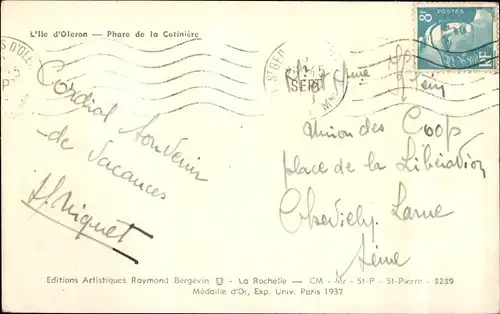 L'Ile d'Oleron - Phare de la Cotinière
8F
POSTES
RF
SEPT
Cordial Souvenir
de Vacances
H. Niquet
Union des Coop
place de la Libération
Chevilly Larue
Seine
Editions Artistiques Raymond Bergevin - La Rochelle - CM - Mr - St-P - St-Pierre - 3289
Médaille d'Or, Exp. Univ. Paris 1937